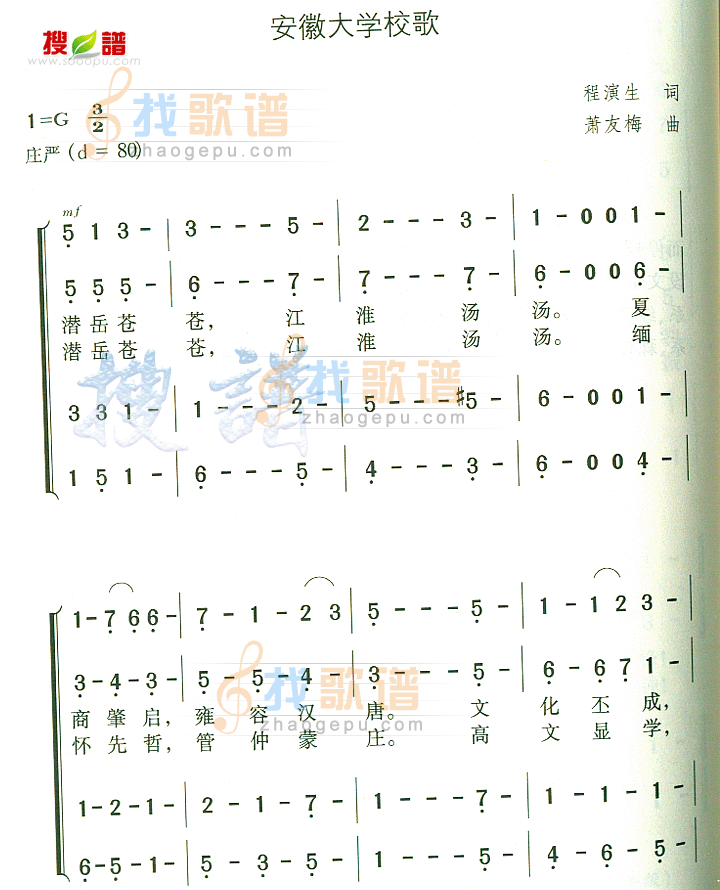 安徽大学校歌
搜譜
www.sooopu.com
程演生 词
1=G 3/2
找歌谱
zhaogepu.com
萧友梅 曲
庄严 (d = 80)
mf
5 1 3 - | 3 - - - 5 - | 2 - - - 3 - | 1 - 0 0 1 -
5 5 5 - | 6 - - - 7 - | 7 - - - 7 - | 6 - 0 0 6 -
潜岳苍 苍, 江 淮 汤 汤。 夏
潜岳苍 苍, 江 淮 汤 汤。 缅
搜譜
找歌谱
zhaogepu.com
3 3 1 - | 1 - - - 2 - | 5 - - - #5 - | 6 - 0 0 1 -
1 5 1 - | 6 - - - 5 - | 4 - - - 3 - | 6 - 0 0 4 -
1 - 7 6 6 - | 7 - 1 - 2 3 | 5 - - - 5 - | 1 - 1 2 3 -
3 - 4 - 3 - | 5 - 5 - 4 - | 3 - - - 5 - | 6 - 6 7 1 -
找歌谱
zhaogepu.com
商 肇 启, 雍 容 汉 唐。 文 化 丕 成,
怀 先 哲, 管 仲 蒙 庄。 高 文 显 学,
1 - 2 - 1 - | 2 - 1 - 7 - | 1 - - - 7 - | 1 - 1 - 1 -
6 - 5 - 1 - | 5 - 5 - 5 - | 1 - - - 5 - | 4 - 6 - 5 -